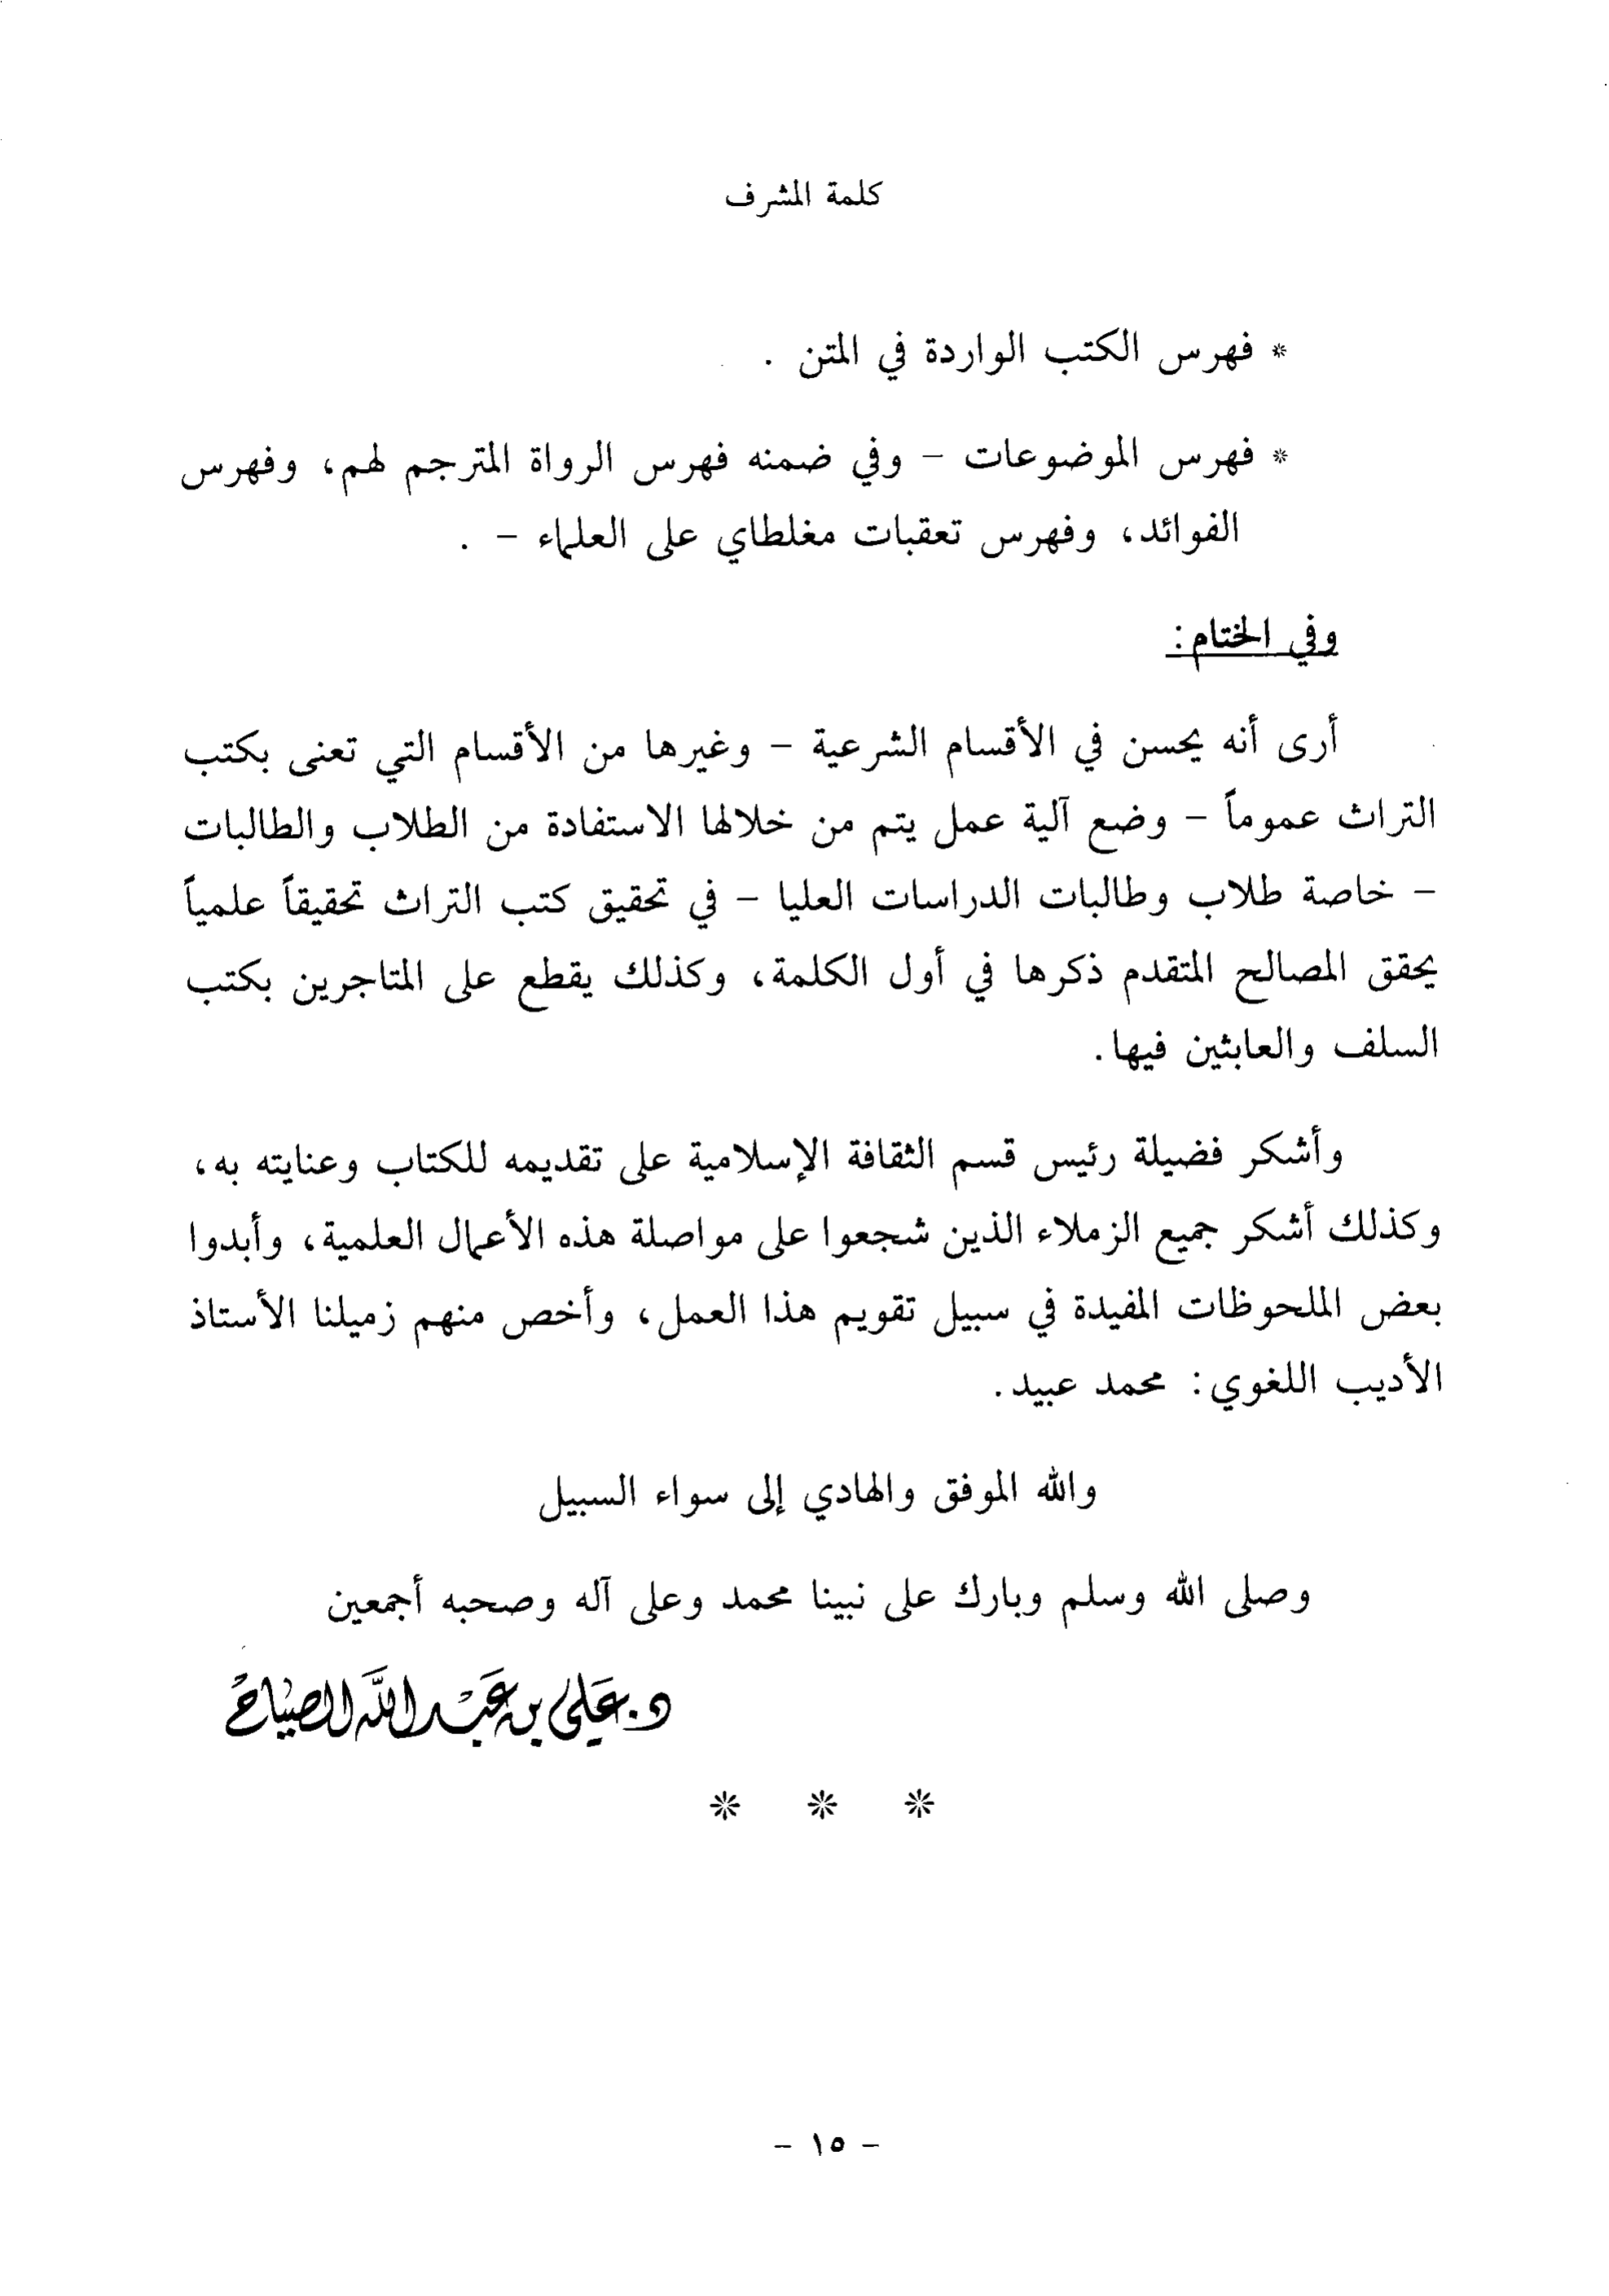 كلمة المشرف
* فهرس الكتب الواردة في المتن .
* فهرس الموضوعات – وفي ضمنه فهرس الرواة المترجم لهم، وفهرس
الفوائد، وفهرس تعقبات مغلطاي على العلماء – .
وفي الختام:
أرى أنه يحسن في الأقسام الشرعية – وغيرها من الأقسام التي تعنى بكتب
التراث عموماً – وضع آلية عمل يتم من خلالها الاستفادة من الطلاب والطالبات
– خاصة طلاب وطالبات الدراسات العليا – في تحقيق كتب التراث تحقيقاً علمياً
يحقق المصالح المتقدم ذكرها في أول الكلمة، وكذلك يقطع على المتاجرين بكتب
السلف والعابثين فيها.
وأشكر فضيلة رئيس قسم الثقافة الإسلامية على تقديمه للكتاب وعنايته به،
وكذلك أشكر جميع الزملاء الذين شجعوا على مواصلة هذه الأعمال العلمية، وأبدوا
بعض الملحوظات المفيدة في سبيل تقويم هذا العمل، وأخص منهم زميلنا الأستاذ
الأديب اللغوي: محمد عبيد.
والله الموفق والهادي إلى سواء السبيل
وصلى الله وسلم وبارك على نبينا محمد وعلى آله وصحبه أجمعين
د. عَلي بن عَبْد اللَّه الصياح
* * *
- ١٥ -